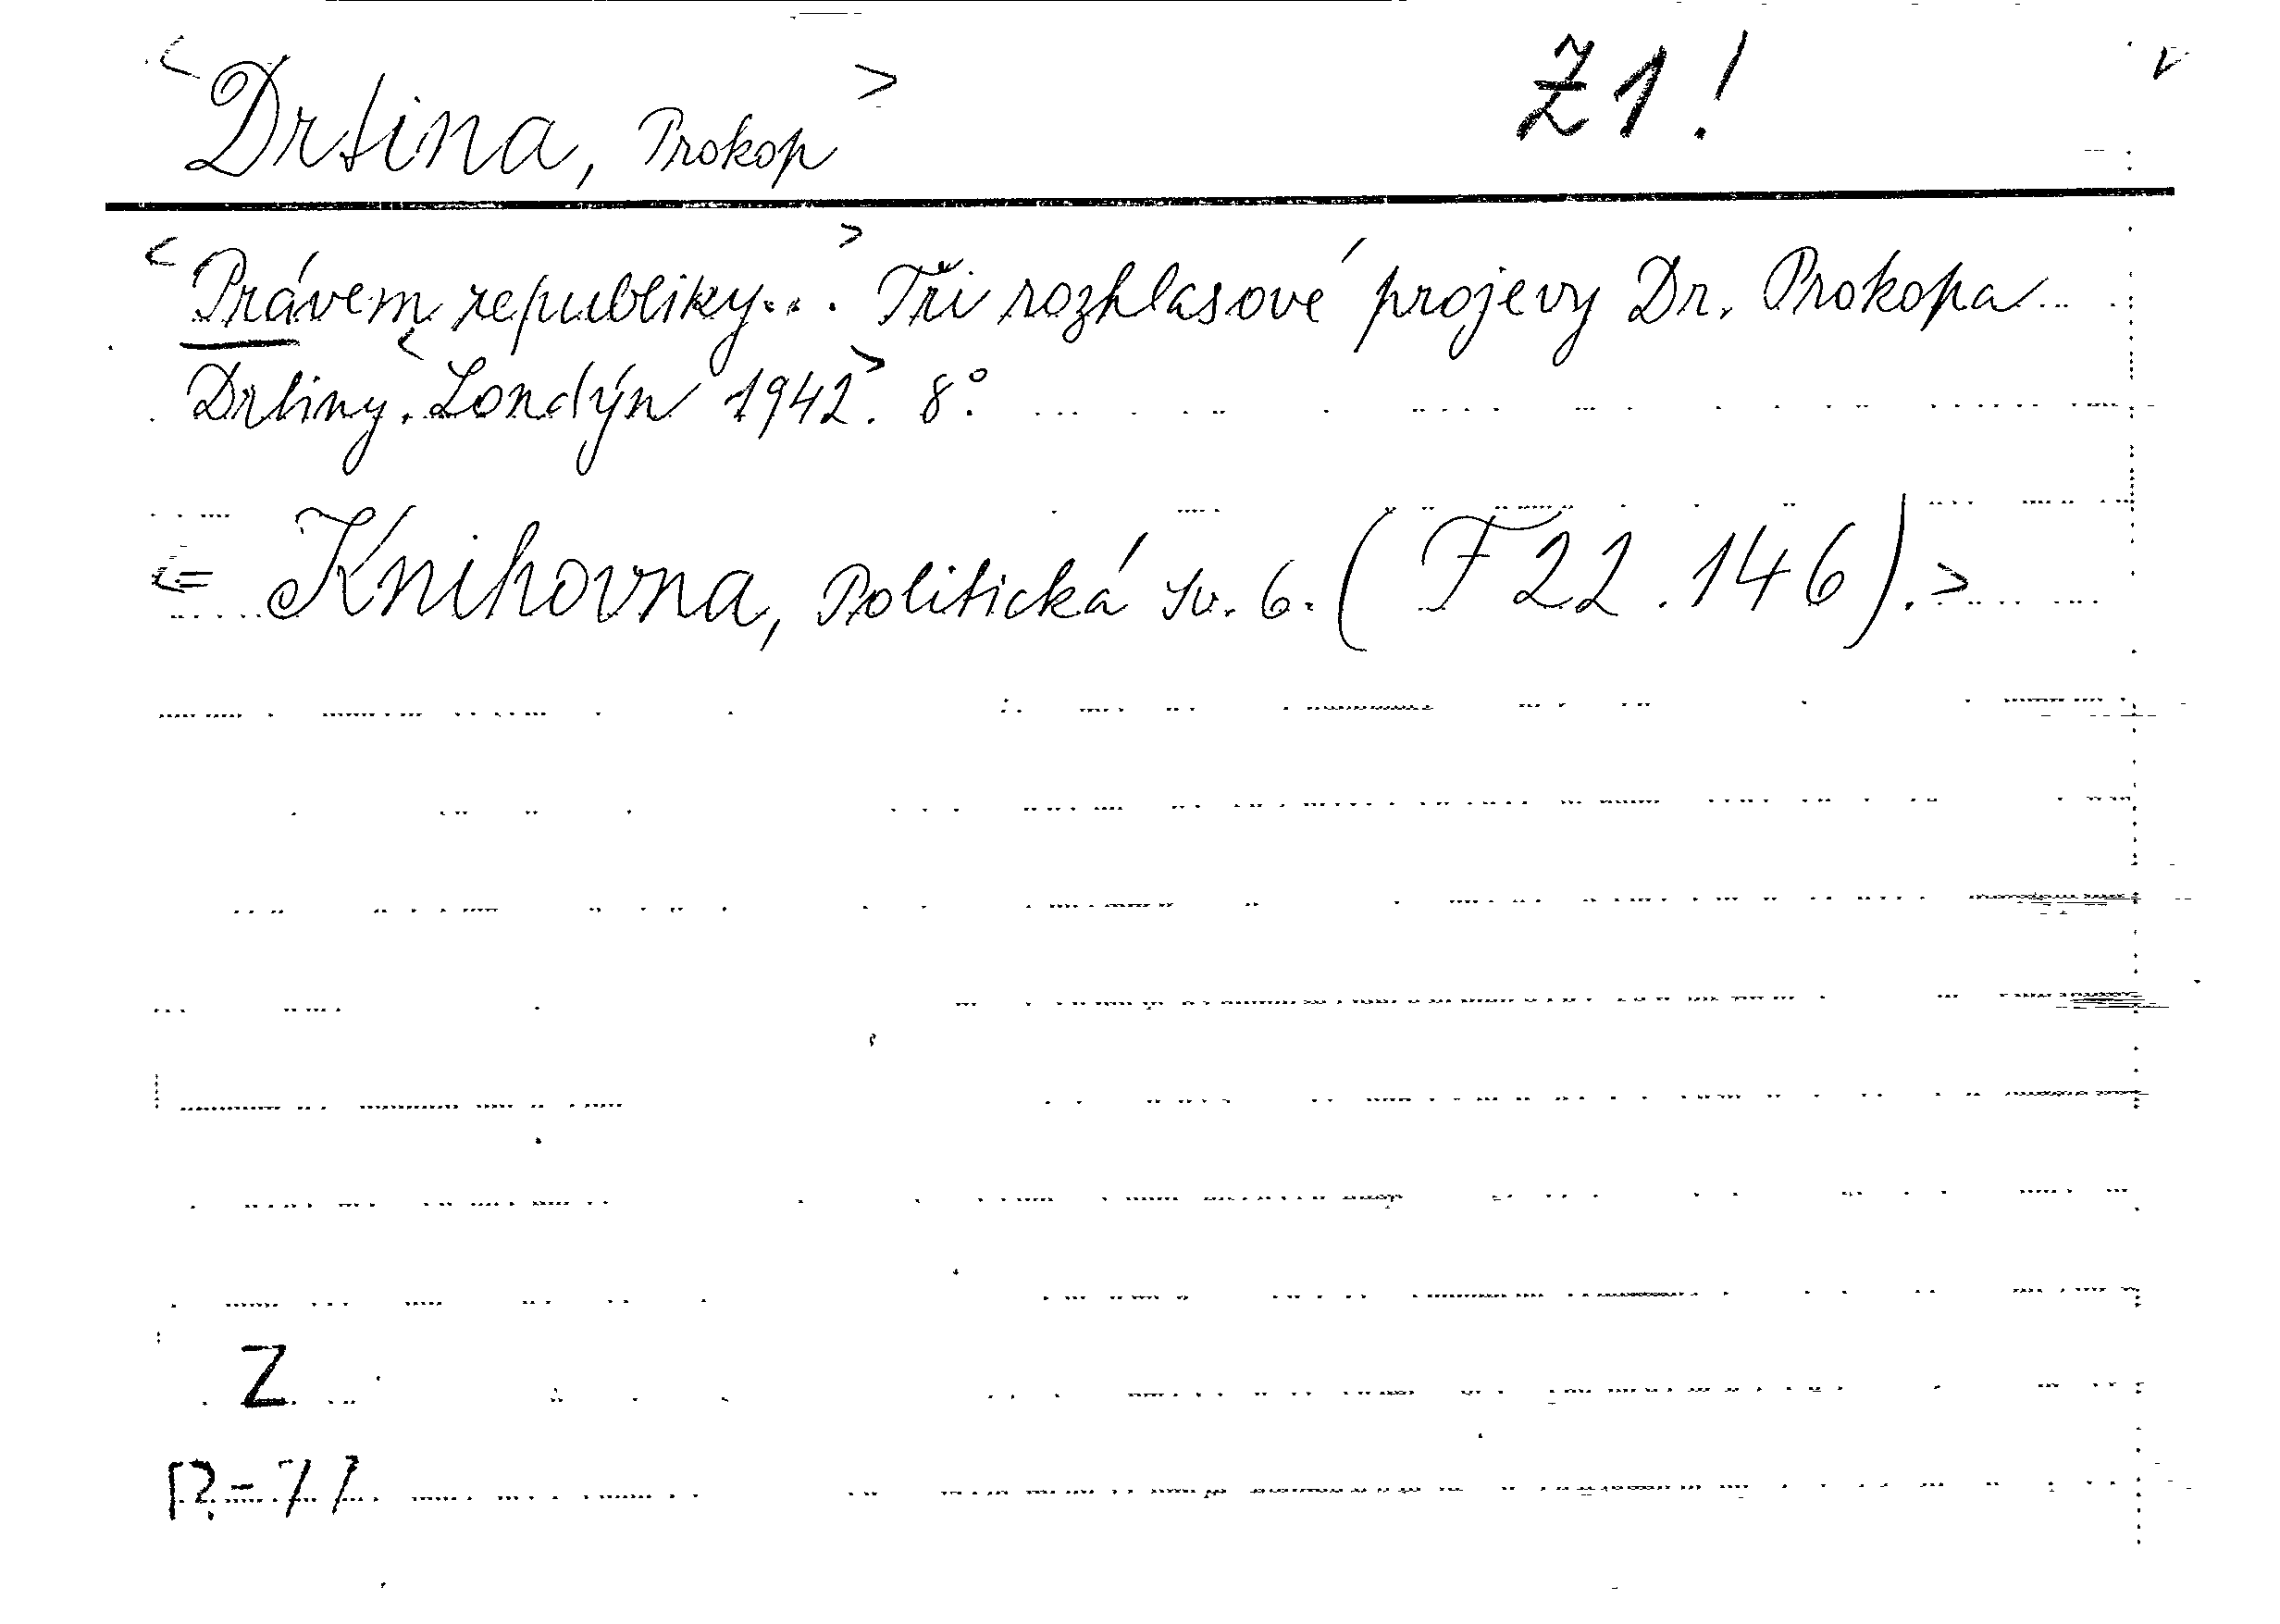 <Drtina, Prokop> Ž1! v
<Právem republiky...> Tři rozhlasové projevy Dr. Prokopa
Drtiny. <Londýn 1942>. 8°.
<= Knihovna, Politická sv. 6. (F 22.146).>
Z